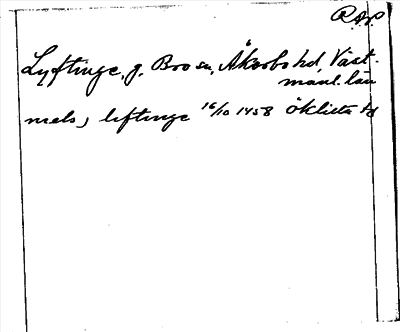 R.A.P
Lyftinge, g. Bro sn, Åkerbo hd. Väst-
manl. län
niels j liftinge 16/10 1458 Öklista